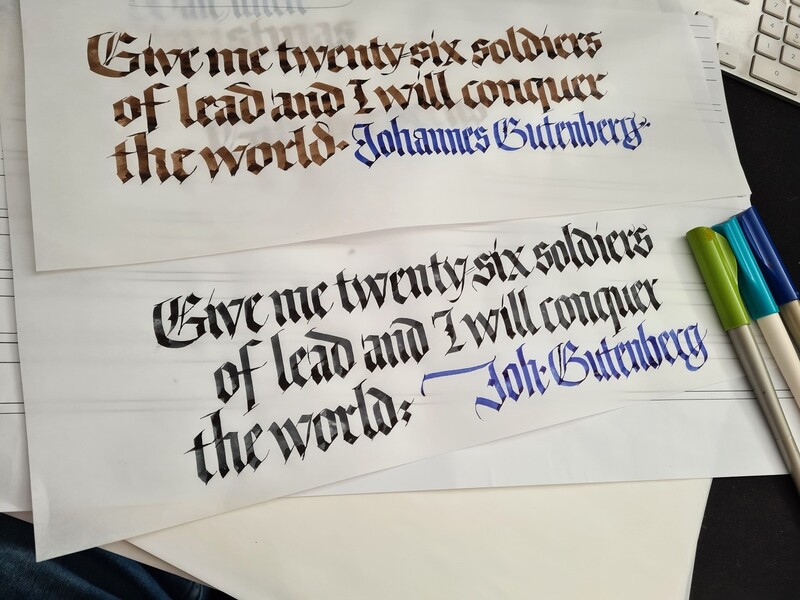 Give me twenty-six soldiers
of lead and I will conquer
the world· Johannes Gutenberg·
Give me twenty-six soldiers
of lead and I will conquer
the world; Joh: Gutenberg